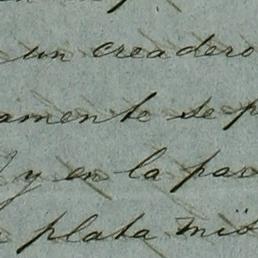 un creadero
amente se p
y en la par
plata mis